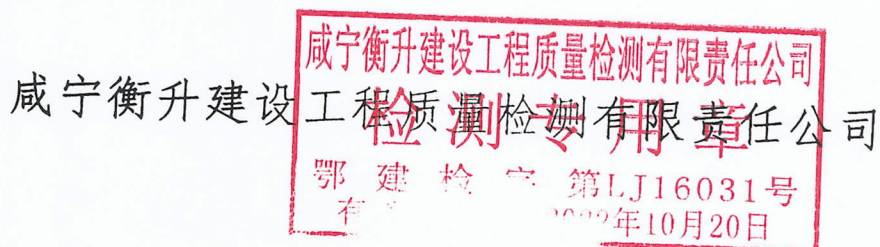 咸宁衡升建设工程质量检测有限责任公司
咸宁衡升建设工程质量检测有限责任公司
检测专用章
鄂建检字第LJ16031号
有 年10月20日